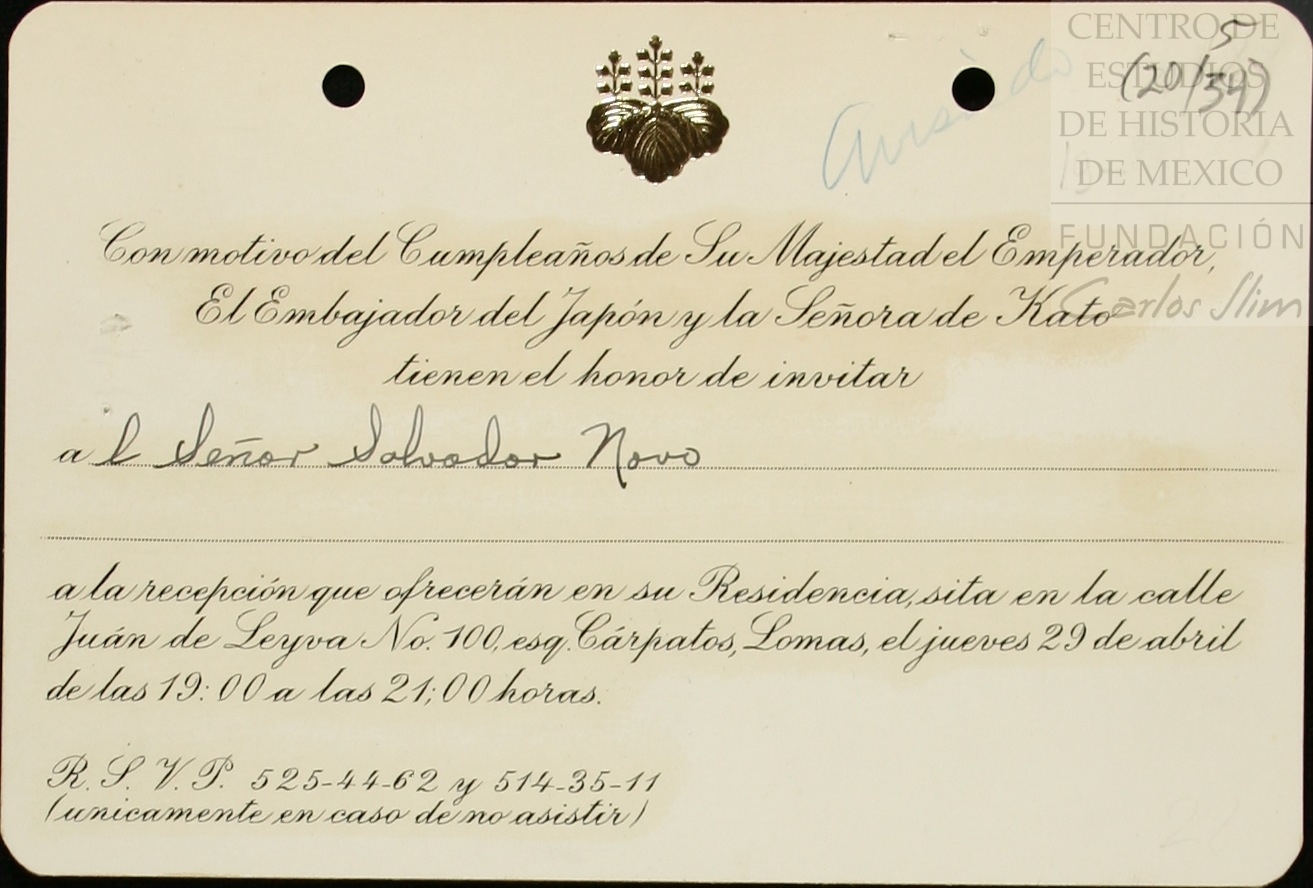 CENTRO DE
ESTUDIOS
DE HISTORIA
DE MEXICO
FUNDACIÓN
Carlos Slim
5
(20/34)
Avisado
Con motivo del Cumpleaños de Su Majestad el Emperador,
El Embajador del Japón y la Señora de Kato
tienen el honor de invitar
a l Señor Salvador Novo
a la recepción que ofrecerán en su Residencia, sita en la calle
Juán de Leyva No. 100, esq. Cárpatos, Lomas, el jueves 29 de abril
de las 19:00 a las 21;00 horas.
R. S. V. P. 525-44-62 y 514-35-11
(unicamente en caso de no asistir)